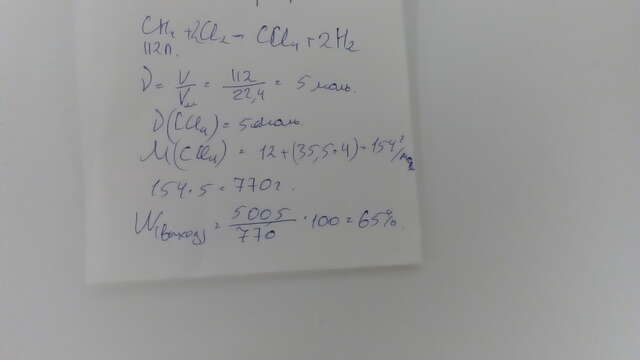 CH4 + 2Cl2 → CCl4 + 2H2
112л.
ν = V/Vм = 112/22,4 = 5 моль.
ν(CCl4) = 5 моль.
M(CCl4) = 12 + (35,5·4) = 154 г/моль
154·5 = 770 г.
W(выход) = 500,5/770 · 100 = 65%.